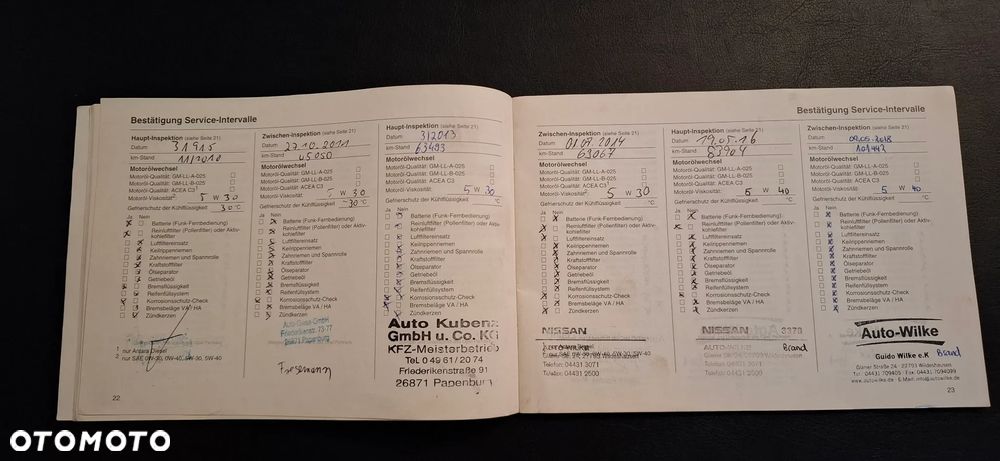 Bestätigung Service-Intervalle
Haupt-Inspektion (siehe Seite 21)
Datum
km-Stand
Motorölwechsel
Motoröl-Qualität: GM-LL-A-025
Motoröl-Qualität: GM-LL-B-025
Motoröl-Qualität: ACEA C3
Motoröl-Viskosität: 5 W 30
Gefrierschutz der Kühlflüssigkeit 30°C
Ja Nein
Batterie (Funk-Fernbedienung)
Reinluftfilter (Pollenfilter) oder Aktiv-
kohlefilter
Luftfiltereinsatz
Keilrippenriemen
Zahnriemen und Spannrolle
Kraftstofffilter
Ölseparator
Getriebeöl
Bremsflüssigkeit
Reifenfüllsystem
Korrosionsschutz-Check
Bremsbeläge VA / HA
Zündkerzen
nur Antara Diesel
22
Zwischen-Inspektion (siehe Seite 21)
Datum 27.10.2011
km-Stand
Motorölwechsel
Motoröl-Qualität: GM-LL-A-025
Motoröl-Qualität: GM-LL-B-025
Motoröl-Qualität: ACEA C3
Motoröl-Viskosität: 5 W 30
Gefrierschutz der Kühlflüssigkeit -30°C
Ja Nein
Batterie (Funk-Fernbedienung)
Reinluftfilter (Pollenfilter) oder Aktiv-
kohlefilter
Luftfiltereinsatz
Keilrippenriemen
Zahnriemen und Spannrolle
Kraftstofffilter
Ölseparator
Getriebeöl
Bremsflüssigkeit
Reifenfüllsystem
Korrosionsschutz-Check
Bremsbeläge VA / HA
Zündkerzen
Friederikenstr. 73-77
26871 Papenburg
Haupt-Inspektion (siehe Seite 21)
Datum 3/2013
km-Stand 63493
Motorölwechsel
Motoröl-Qualität: GM-LL-A-025
Motoröl-Qualität: GM-LL-B-025
Motoröl-Qualität: ACEA C3
Motoröl-Viskosität: 5 W 30
Gefrierschutz der Kühlflüssigkeit °C
Ja Nein
Batterie (Funk-Fernbedienung)
Reinluftfilter (Pollenfilter) oder Aktiv-
kohlefilter
Luftfiltereinsatz
Keilrippenriemen
Zahnriemen und Spannrolle
Kraftstofffilter
Ölseparator
Getriebeöl
Bremsflüssigkeit
Reifenfüllsystem
Korrosionsschutz-Check
Bremsbeläge VA / HA
Zündkerzen
Auto Kuben
GmbH u. Co. KG
KFZ-Meisterbetrieb
Tel. 0 49 61/20 74
Friederikenstraße 91
26871 Papenburg
Bestätigung Service-Intervalle
Zwischen-Inspektion (siehe Seite 21)
Datum 2014
km-Stand 69067
Motorölwechsel
Motoröl-Qualität: GM-LL-A-025
Motoröl-Qualität: GM-LL-B-025
Motoröl-Qualität: ACEA C3
Motoröl-Viskosität: 5 W 30
Gefrierschutz der Kühlflüssigkeit °C
Ja Nein
Batterie (Funk-Fernbedienung)
Reinluftfilter (Pollenfilter) oder Aktiv-
kohlefilter
Luftfiltereinsatz
Keilrippenriemen
Zahnriemen und Spannrolle
Kraftstofffilter
Ölseparator
Getriebeöl
Bremsflüssigkeit
Reifenfüllsystem
Korrosionsschutz-Check
Bremsbeläge VA / HA
Zündkerzen
NISSAN
AUTO-WILKE
Telefon: 04431 3071
Telefax: 04431 2500
Haupt-Inspektion (siehe Seite 21)
Datum 19.05.16
km-Stand 83904
Motorölwechsel
Motoröl-Qualität: GM-LL-A-025
Motoröl-Qualität: GM-LL-B-025
Motoröl-Qualität: ACEA C3
Motoröl-Viskosität: 5 W 40
Gefrierschutz der Kühlflüssigkeit °C
Ja Nein
Batterie (Funk-Fernbedienung)
Reinluftfilter (Pollenfilter) oder Aktiv-
kohlefilter
Luftfiltereinsatz
Keilrippenriemen
Zahnriemen und Spannrolle
Kraftstofffilter
Ölseparator
Getriebeöl
Bremsflüssigkeit
Reifenfüllsystem
Korrosionsschutz-Check
Bremsbeläge VA / HA
Zündkerzen
NISSAN 3370
AUTO-WILKE Brand
Telefon: 04431 3071
Telefax: 04431 2500
Zwischen-Inspektion (siehe Seite 21)
Datum 09.05.2018
km-Stand 101442
Motorölwechsel
Motoröl-Qualität: GM-LL-A-025
Motoröl-Qualität: GM-LL-B-025
Motoröl-Qualität: ACEA C3
Motoröl-Viskosität: 5 W 40
Gefrierschutz der Kühlflüssigkeit °C
Ja Nein
Batterie (Funk-Fernbedienung)
Reinluftfilter (Pollenfilter) oder Aktiv-
kohlefilter
Luftfiltereinsatz
Keilrippenriemen
Zahnriemen und Spannrolle
Kraftstofffilter
Ölseparator
Getriebeöl
Bremsflüssigkeit
Reifenfüllsystem
Korrosionsschutz-Check
Bremsbeläge VA / HA
Zündkerzen
Auto-Wilke
Guido Wilke e.K Brand
23
OTOMOTO